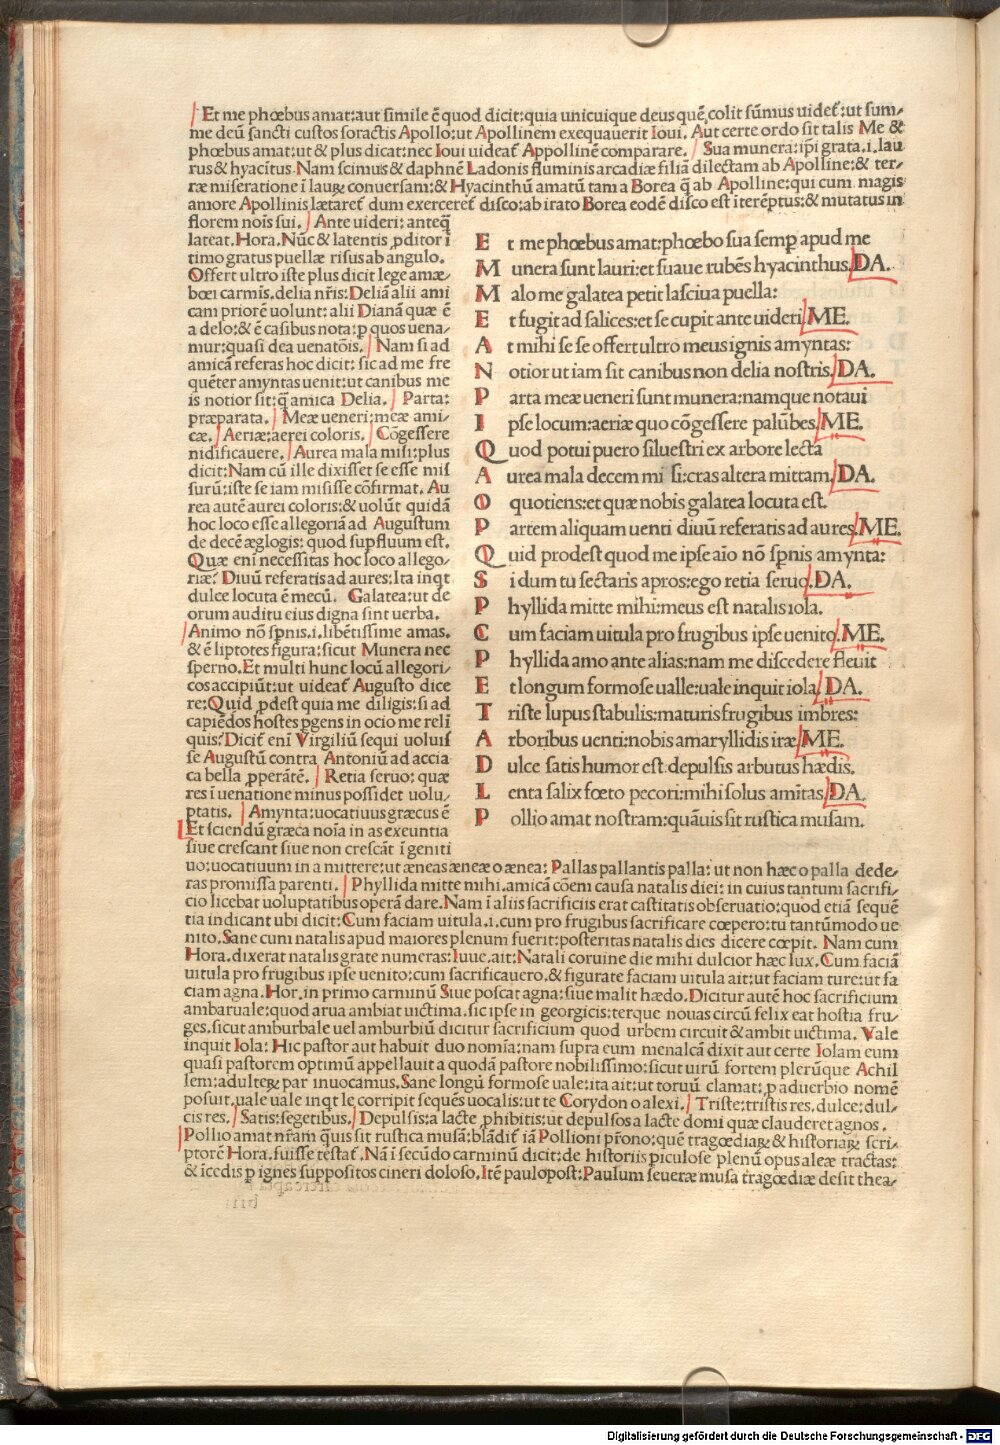 Et me phœbus amat:aut simile ē quod dicit:quia unicuique deus quē colit sūmus uideť:ut sum-
me deū sancti custos soractis Apollo:ut Apollinem exequauerit Ioui. Aut certe ordo sit talis Me &
phœbus amat:ut & plus dicat:nec Ioui uideať Appollinē comparare. Sua munera:ip̄i grata.i.lau
rus & hyacītus.Nam scimus & daphnē Ladonis fluminis arcadiæ filiā dilectam ab Apolline:& ter-
ræ miseratione ī laurū conuersam:& Hyacinthū amatū tam a Borea q̄ ab Apolline:qui cum magis
amore Apollinis lætareť dum exerceret̄ disco:ab irato Borea eodē disco est iterēptus:& mutatus in
florem noīs sui. Ante uideri: anteq̄
lateat.Hora.Nūc & latentis ꝓditor ī
timo gratus puellæ risus ab angulo.
Offert ultro iste plus dicit lege amæ-
bœi carmīs.delia nr̄is:Deliā alii ami
cam priorē uolunt: alii Dianā quæ ē
a delo:& ē casibus nota:p̱ quos uena-
mur:quasi dea uenatōis. Nam si ad
amicā referas hoc dicit: sic ad me fre
quēter amyntas uenit:ut canibus me
is notior sit:q̄ amica Delia. Parta:
præparata. Meæ ueneri:meæ ami-
cæ. Aeriæ:aerei coloris. Cōgessere
nidificauere. Aurea mala misi:plus
dicit:Nam cū ille dixisset se esse mis
surū:iste se iam misisse cōfirmat. Au
rea autē aurei coloris:& uolūt quidā
hoc loco esse allegoriā ad Augustum
de decē æglogis: quod supfluum est.
Quæ enī necessitas hoc loco allego-
riæ? Diuū referatis ad aures:Ita inqt
dulce locuta ē mecū. Galatea:ut de
orum auditu eius digna sint uerba.
Animo nō sp̱nis.i.libētissime amas.
& ē liptotes figura:sicut Munera nec
sperno.Et multi hunc locū allegori-
cos accipiūt:ut uideať Augusto dice
re:Quid ꝓdest quia me diligis:si ad
capiēdos hostes p̱gens in ocio me reli
quis?Diciť enī Virgiliū sequi uoluis
se Augustū contra Antoniū ad accia
ca bella ꝓperātē. Retia seruo: quæ
res ī uenatione minus possidet uolu-
ptatis. Amynta:uocatiuus græcus ē
Et sciendū græca noīa in as exeuntia
siue crescant siue non crescāt ī geniti
E t me phœbus amat:phœbo sua semp̱ apud me
M unera sunt lauri:et suaue rubēs hyacinthus.DA.
M alo me galatea petit lasciua puella:
E t fugit ad salices:et se cupit ante uideri.ME.
A t mihi se se offert ultro meus ignis amyntas:
N otior ut iam sit canibus non delia nostris.DA.
P arta meæ ueneri sunt munera:namque notaui
I pse locum:aeriæ quo cōgessere palūbes.ME.
Q uod potui puero siluestri ex arbore lecta
A urea mala decem mi si:cras altera mittam.DA.
O quotiens:et quæ nobis galatea locuta est.
P artem aliquam uenti diuū referatis ad aures.ME.
Q uid prodest quod me ipse aīo nō sp̱nis amynta:
S i dum tu sectaris apros:ego retia seruo.DA.
P hyllida mitte mihi:meus est natalis iola.
C um faciam uitula pro frugibus ipse uenito.ME.
P hyllida amo ante alias:nam me discedere fleuit
E t longum formose ualle:uale inquit iola.DA.
T riste lupus stabulis:maturis frugibus imbres:
A rboribus uenti:nobis amaryllidis iræ.ME.
D ulce satis humor est.depulsis arbutus hædis.
L enta salix fœto pecori:mihi solus amītas.DA.
P ollio amat nostram:quāuis sit rustica musam.
uo:uocatiuum in a mittere:ut æneas æneæ o ænea: Pallas pallantis palla: ut non hæc o palla dede-
ras promissa parenti. Phyllida mitte mihi.amicā cōem causa natalis diei: in cuius tantum sacrifi-
cio licebat uoluptatibus operā dare.Nam ī aliis sacrificiis erat castitatis obseruatio:quod etiā sequē
tia indicant ubi dicit:Cum faciam uitula.i.cum pro frugibus sacrificare cœpero:tu tantūmodo ue
nito.Sane cum natalis apud maiores plenum fuerit:posteritas natalis dies dicere cœpit. Nam cum
Hora.dixerat natalis grate numeras:Iuue.ait:Natali coruine die mihi dulcior hæc lux.Cum faciā
uitula pro frugibus ipse uenito:cum sacrificauero.& figurate faciam uitula ait:ut faciam ture:ut fa
ciam agna.Hor.in primo carminū Siue poscat agna:siue malit hædo.Dicitur autē hoc sacrificium
ambaruale:quod arua ambiat uictima.sic ipse in georgicis:terque nouas circū felix eat hostia fru-
ges.sicut amburbale uel amburbiū dicitur sacrificium quod urbem circuit & ambit uictima. Vale
inquit Iola: Hic pastor aut habuit duo nomīa:nam supra eum menalcā dixit aut certe Iolam eum
quasi pastorem optimū appellauit a quodā pastore nobilissimo:sicut uirū fortem plerūque Achil
lem:adulteꝝ par inuocamus.Sane longū formose uale:ita ait:ut toruū clamat:p aduerbio nomē
posuit.uale uale inqt le corripit sequēs uocalis:ut te Corydon o alexi. Triste:tristis res.dulce:dul-
cis res. Satis:segetibus. Depulsis:a lacte ꝓhibitis:ut depulsos a lacte domi quæ clauderet agnos.
Pollio amat nr̄am q̄uis sit rustica musā:blādiť iā Pollioni pr̄ono:quē tragœdiaꝝ & historiaꝝ scri-
ptorē Hora.fuisse testať. Nā ī secūdo carminū dicit:de historiis p̱iculose plenū opus aleæ tractas:
& īcedis p̱ ignes suppositos cineri doloso.Itē paulopost:Paulum seueræ musa tragœdiæ desit thea-
Digitalisierung gefördert durch die Deutsche Forschungsgemeinschaft - DFG